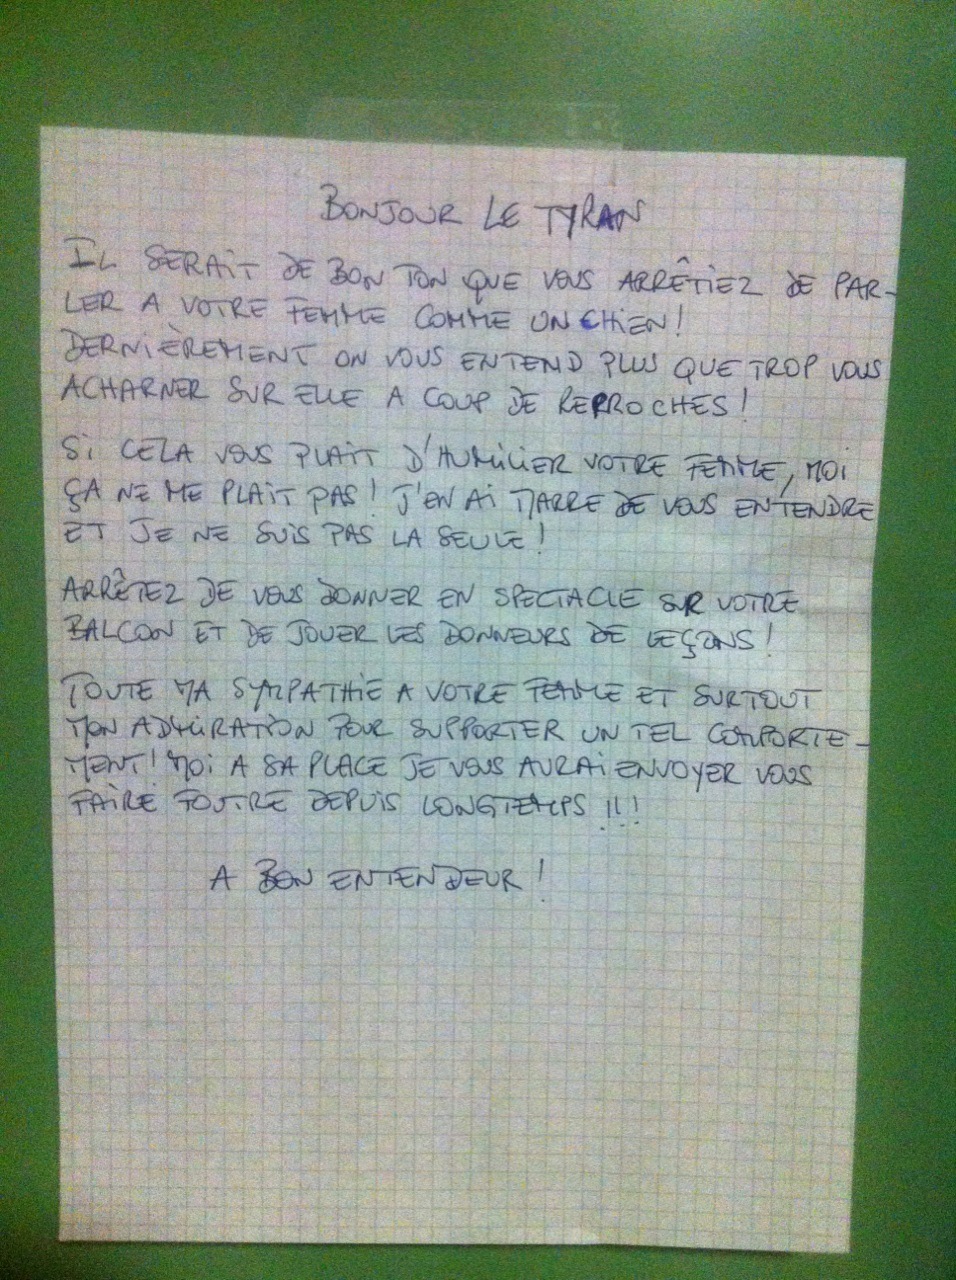 BONJOUR LE TYRAN
IL SERAIT DE BON TON QUE VOUS ARRÊTIEZ DE PAR-
LER A VOTRE FEMME COMME UN CHIEN!
DERNIÈREMENT ON VOUS ENTEND PLUS QUE TROP VOUS
ACHARNER SUR ELLE A COUP DE REPROCHES!
SI CELA VOUS PLAIT D'HUMILIER VOTRE FEMME, MOI
ÇA NE ME PLAIT PAS! J'EN AI MARRE DE VOUS ENTENDRE
ET JE NE SUIS PAS LA SEULE!
ARRÊTEZ DE VOUS DONNER EN SPECTACLE SUR VOTRE
BALCON ET DE JOUER LES DONNEURS DE LEÇONS!
TOUTE MA SYMPATHIE A VOTRE FEMME ET SURTOUT
MON ADMIRATION POUR SUPPORTER UN TEL COMPORTE-
MENT! MOI A SA PLACE JE VOUS AURAI ENVOYER VOUS
FAIRE FOUTRE DEPUIS LONGTEMPS !!!
A BON ENTENDEUR!